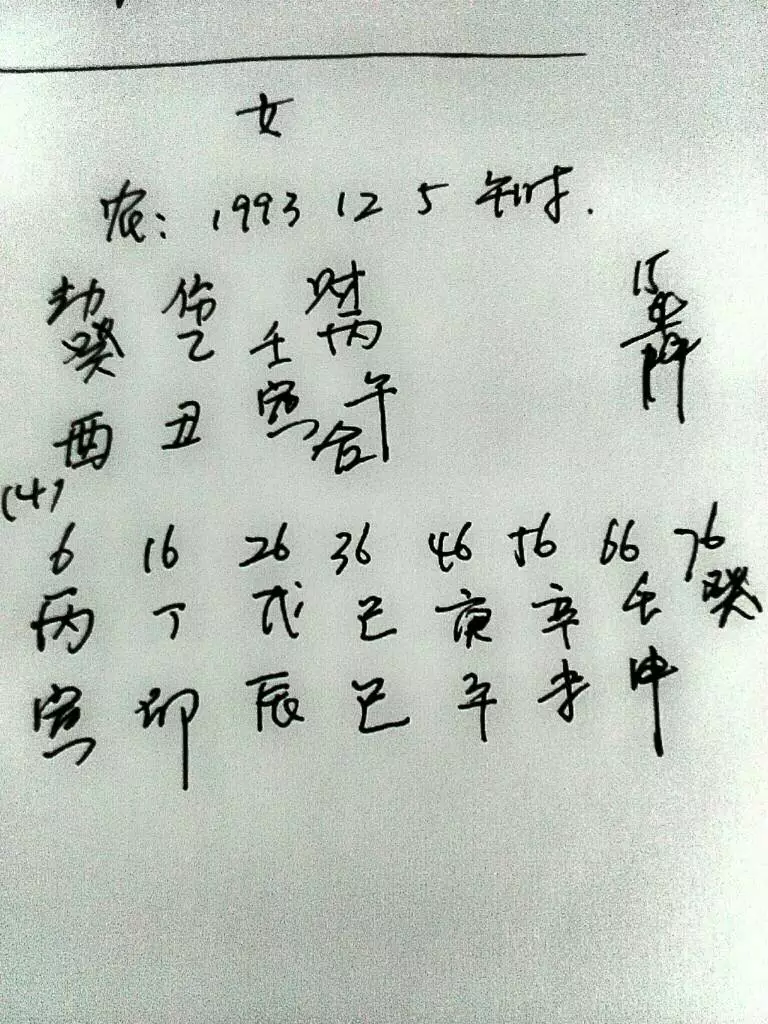 女
农: 1993 12 5 午时.
劫 伤 财 15
癸 乙 壬 丙
酉 丑 寅 午
合
(4)
6 16 26 36 46 56 66 76
丙 丁 戊 己 庚 辛 壬 癸
寅 卯 辰 巳 午 未 申